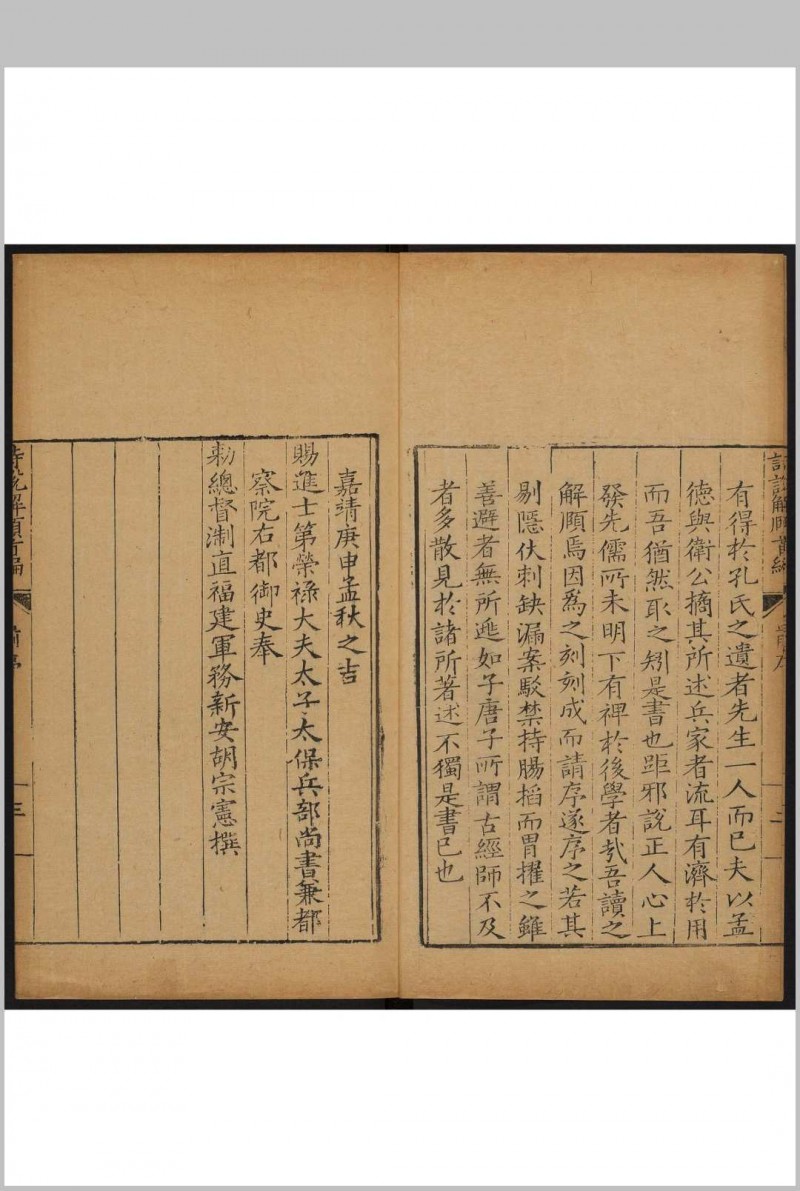 有得於孔氏之遺者先生一人而已夫以孟
德與衛公摘其所述兵家者流耳有濟於用
而吾猶然取之矧是書也距邪說正人心上
發先儒所未明下有裨於後學者㢤吾讀之
解頤焉因爲之刻刻成而請序遂序之若其
剔隱伏刺缺漏案駁禁持腸搯而胃擢之雖
善避者無所逃如子唐子所謂古經師不及
者多散見於諸所著述不獨是書已也
嘉靖庚申孟秋之吉
賜進士第榮祿大夫太子太保兵部尚書兼都
察院右都御史奉
勑總督浙直福建軍務新安胡宗憲撰
詩說解頤首編
前序
三